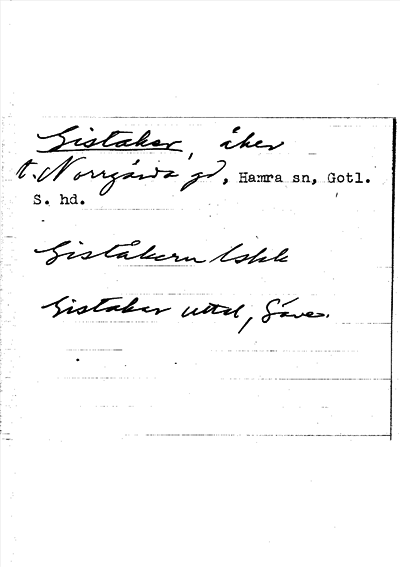 Gistaker, åker
t. Norrgårda gd, Hamra sn, Gotl.
S. hd.
Giståkern lskk
Gistaker uttal, Säve.